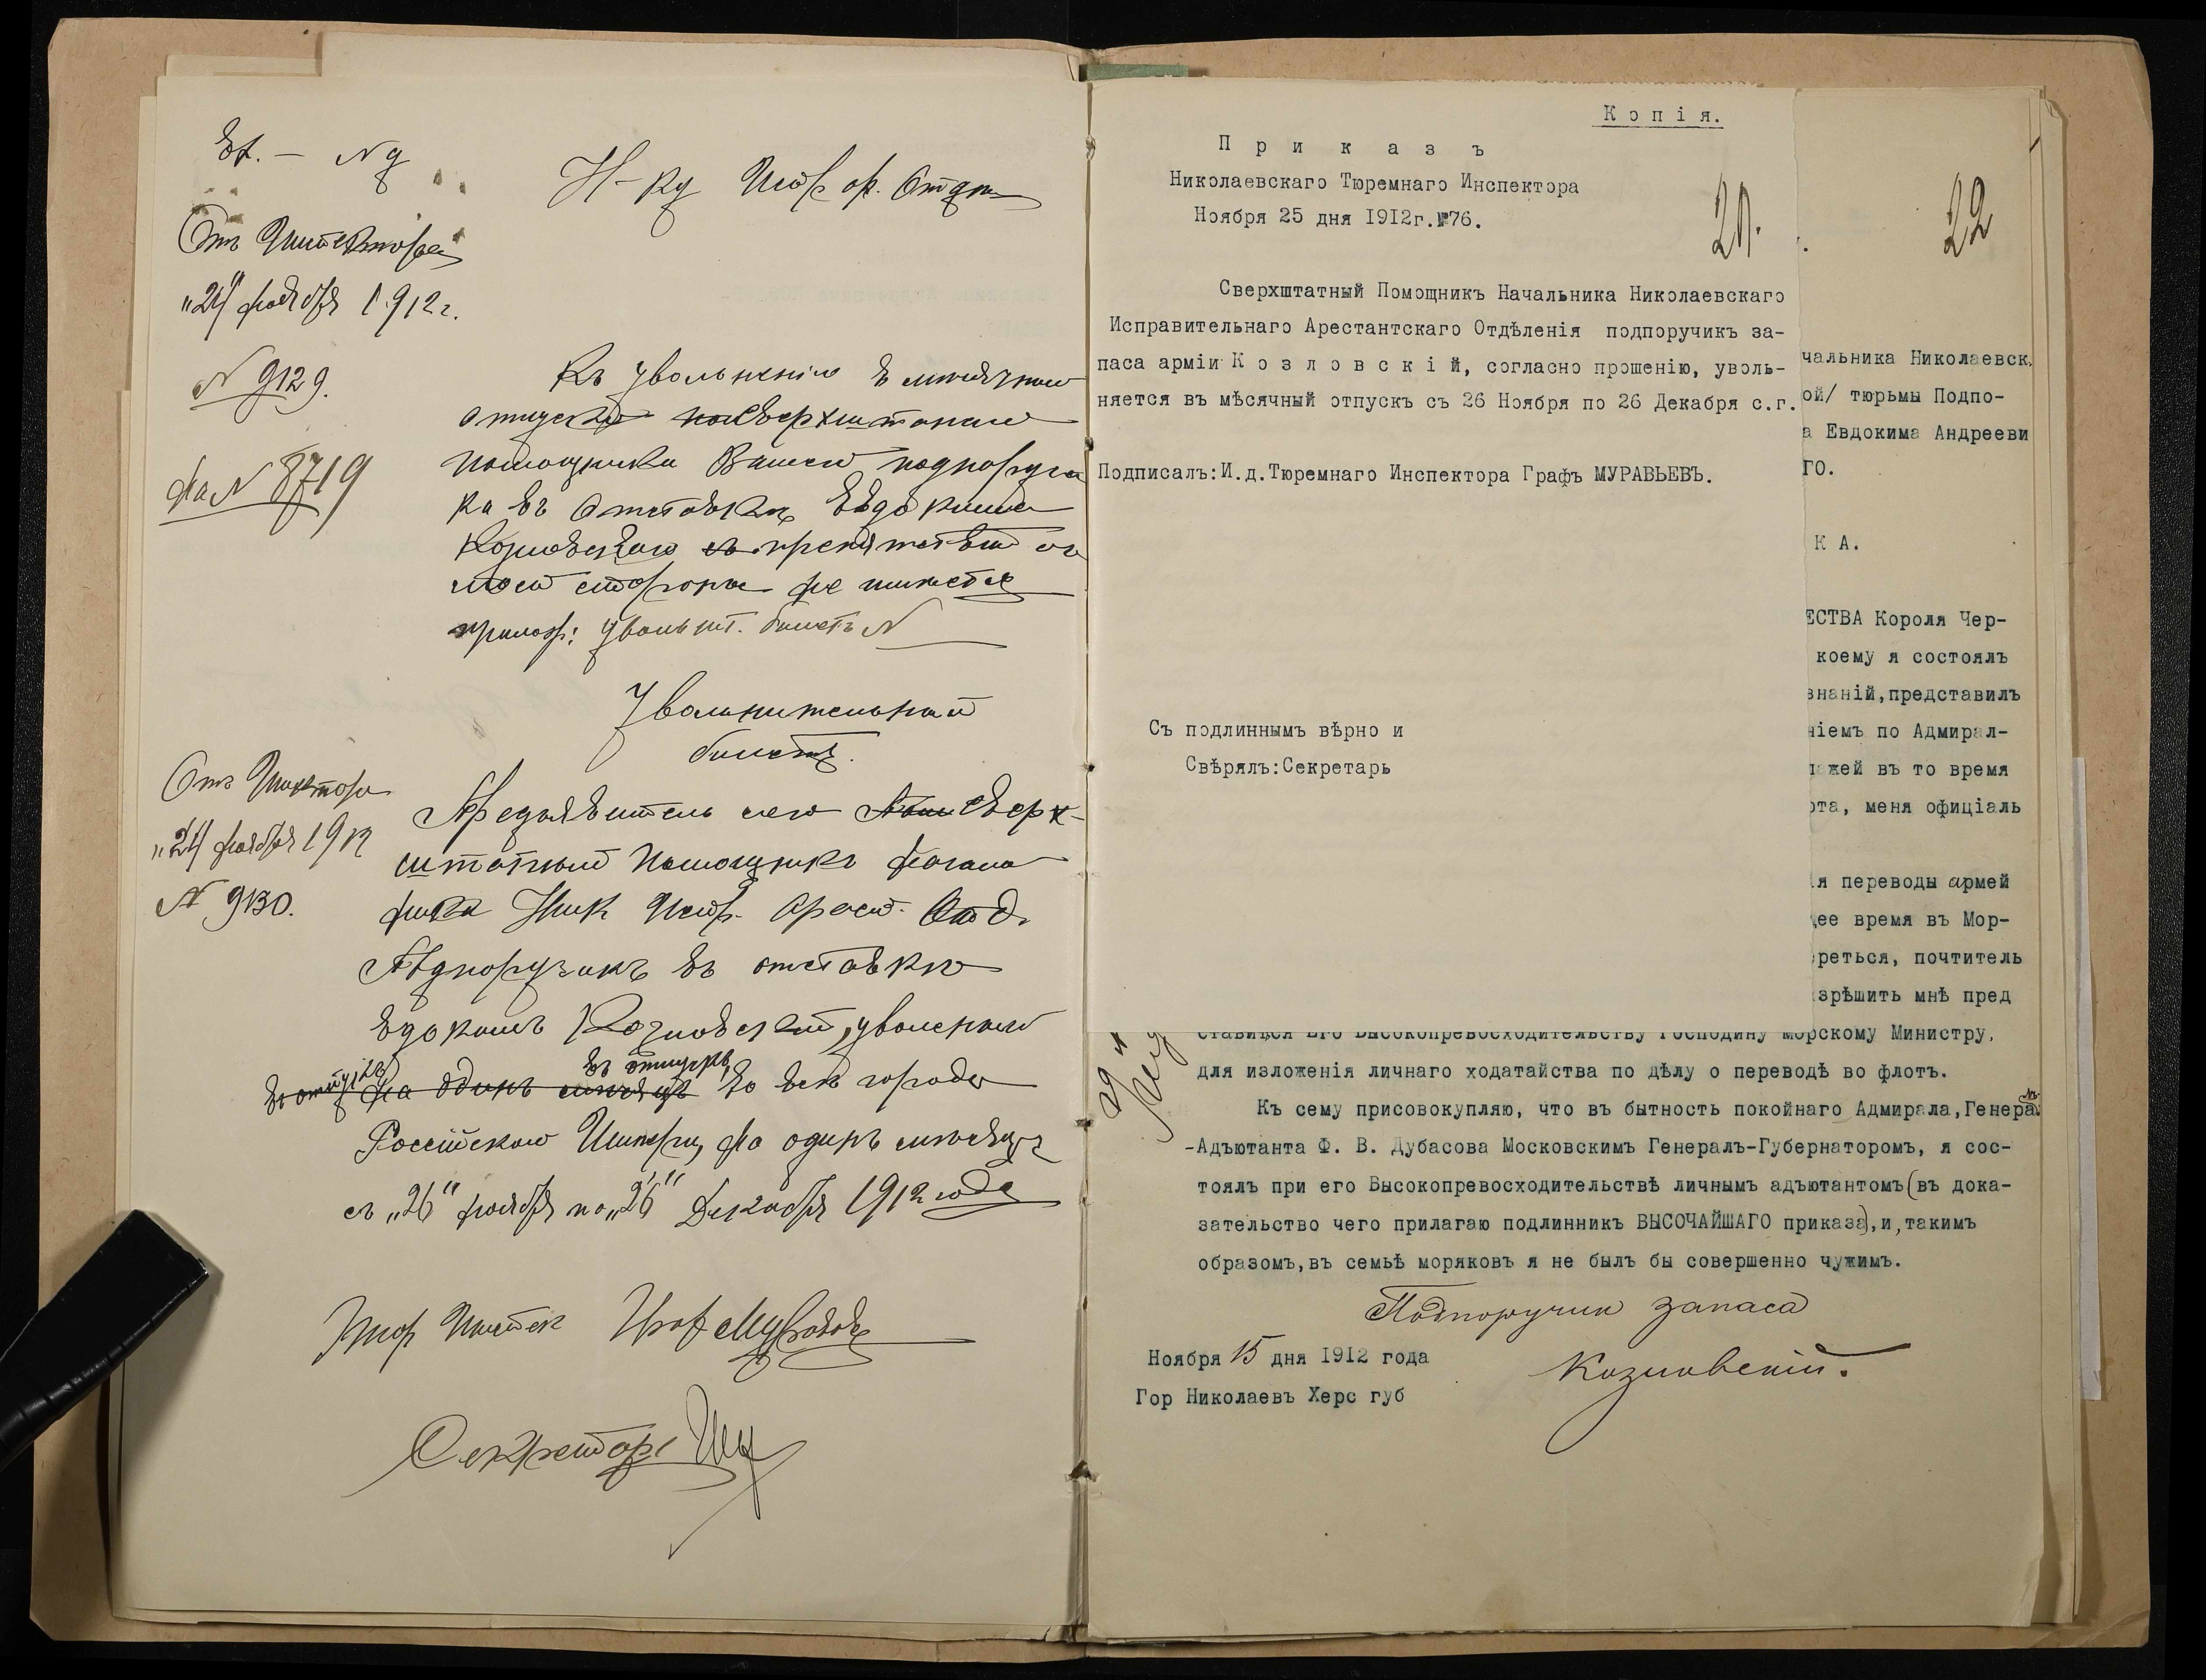 Н-ку Испр. ар. Отдѣл
Отъ Инспектора
"24" ноября 1912 г.
№ 9129.
На № 8719
Къ увольненію въ мѣсячный
отпускъ сверхштатнаго
помощника Вашего подпоручи
ка въ отставкѣ Евдокима
Козловскаго препятствій съ
моей стороны не имѣется
прилож: увольнит. билетъ №
Увольнительный
билетъ.
Отъ Инспектора
"24" ноября 1912
№ 9130.
Предъявитель сего сверх-
штатный помощникъ началь
ника Ник Испр. Арест. Отд.
Подпоручикъ въ отставкѣ
Евдокимъ Козловскій, уволенный
въ отпускъ на одинъ мѣсяцъ въ отпускъ во всѣ города
Россійской Имперіи, на одинъ мѣсяцъ
съ "26" ноября по "26" Декабря 1912 года
Тюр Инспек Граф Муравьевъ
Секретарь
Копія.
Приказъ
Николаевскаго Тюремнаго Инспектора
Ноября 25 дня 1912г.№76.
20.
Сверхштатный Помощникъ Начальника Николаевскаго
Исправительнаго Арестантскаго Отдѣленія подпоручикъ за-
паса арміи Козловскій, согласно прошенію, уволь-
няется въ мѣсячный отпускъ съ 26 Ноября по 26 Декабря с.г.
Подписалъ:И.д.Тюремнаго Инспектора Графъ МУРАВЬЕВЪ.
Съ подлиннымъ вѣрно и
Свѣрялъ:Секретарь
22
чальника Николаевск.
ой/ тюрьмы Подпо-
а Евдокима Андрееви
ГО.
К А.
ЕСТВА Короля Чер-
коему я состоялъ
знаній,представилъ
ніемъ по Адмирал-
пажей въ то время
ота, меня офиціаль
я переводы армей
ее время въ Мор-
реться, почтитель
зрѣшить мнѣ пред
ставиться Его Высокопревосходительству Господину Морскому Министру,
для изложенія личнаго ходатайства по дѣлу о переводѣ во флотъ.
Къ сему присовокупляю, что въ бытность покойнаго Адмирала,Генералъ
-Адъютанта Ф. В. Дубасова Московскимъ Генералъ-Губернаторомъ, я сос-
тоялъ при его Высокопревосходительствѣ личнымъ адъютантомъ(въ дока-
зательство чего прилагаю подлинникъ ВЫСОЧАЙШАГО приказа),и,такимъ
образомъ,въ семьѣ моряковъ я не былъ бы совершенно чужимъ.
Подпоручик запаса
Козловскій.
Ноября 15 дня 1912 года
Гор Николаевъ Херс губ